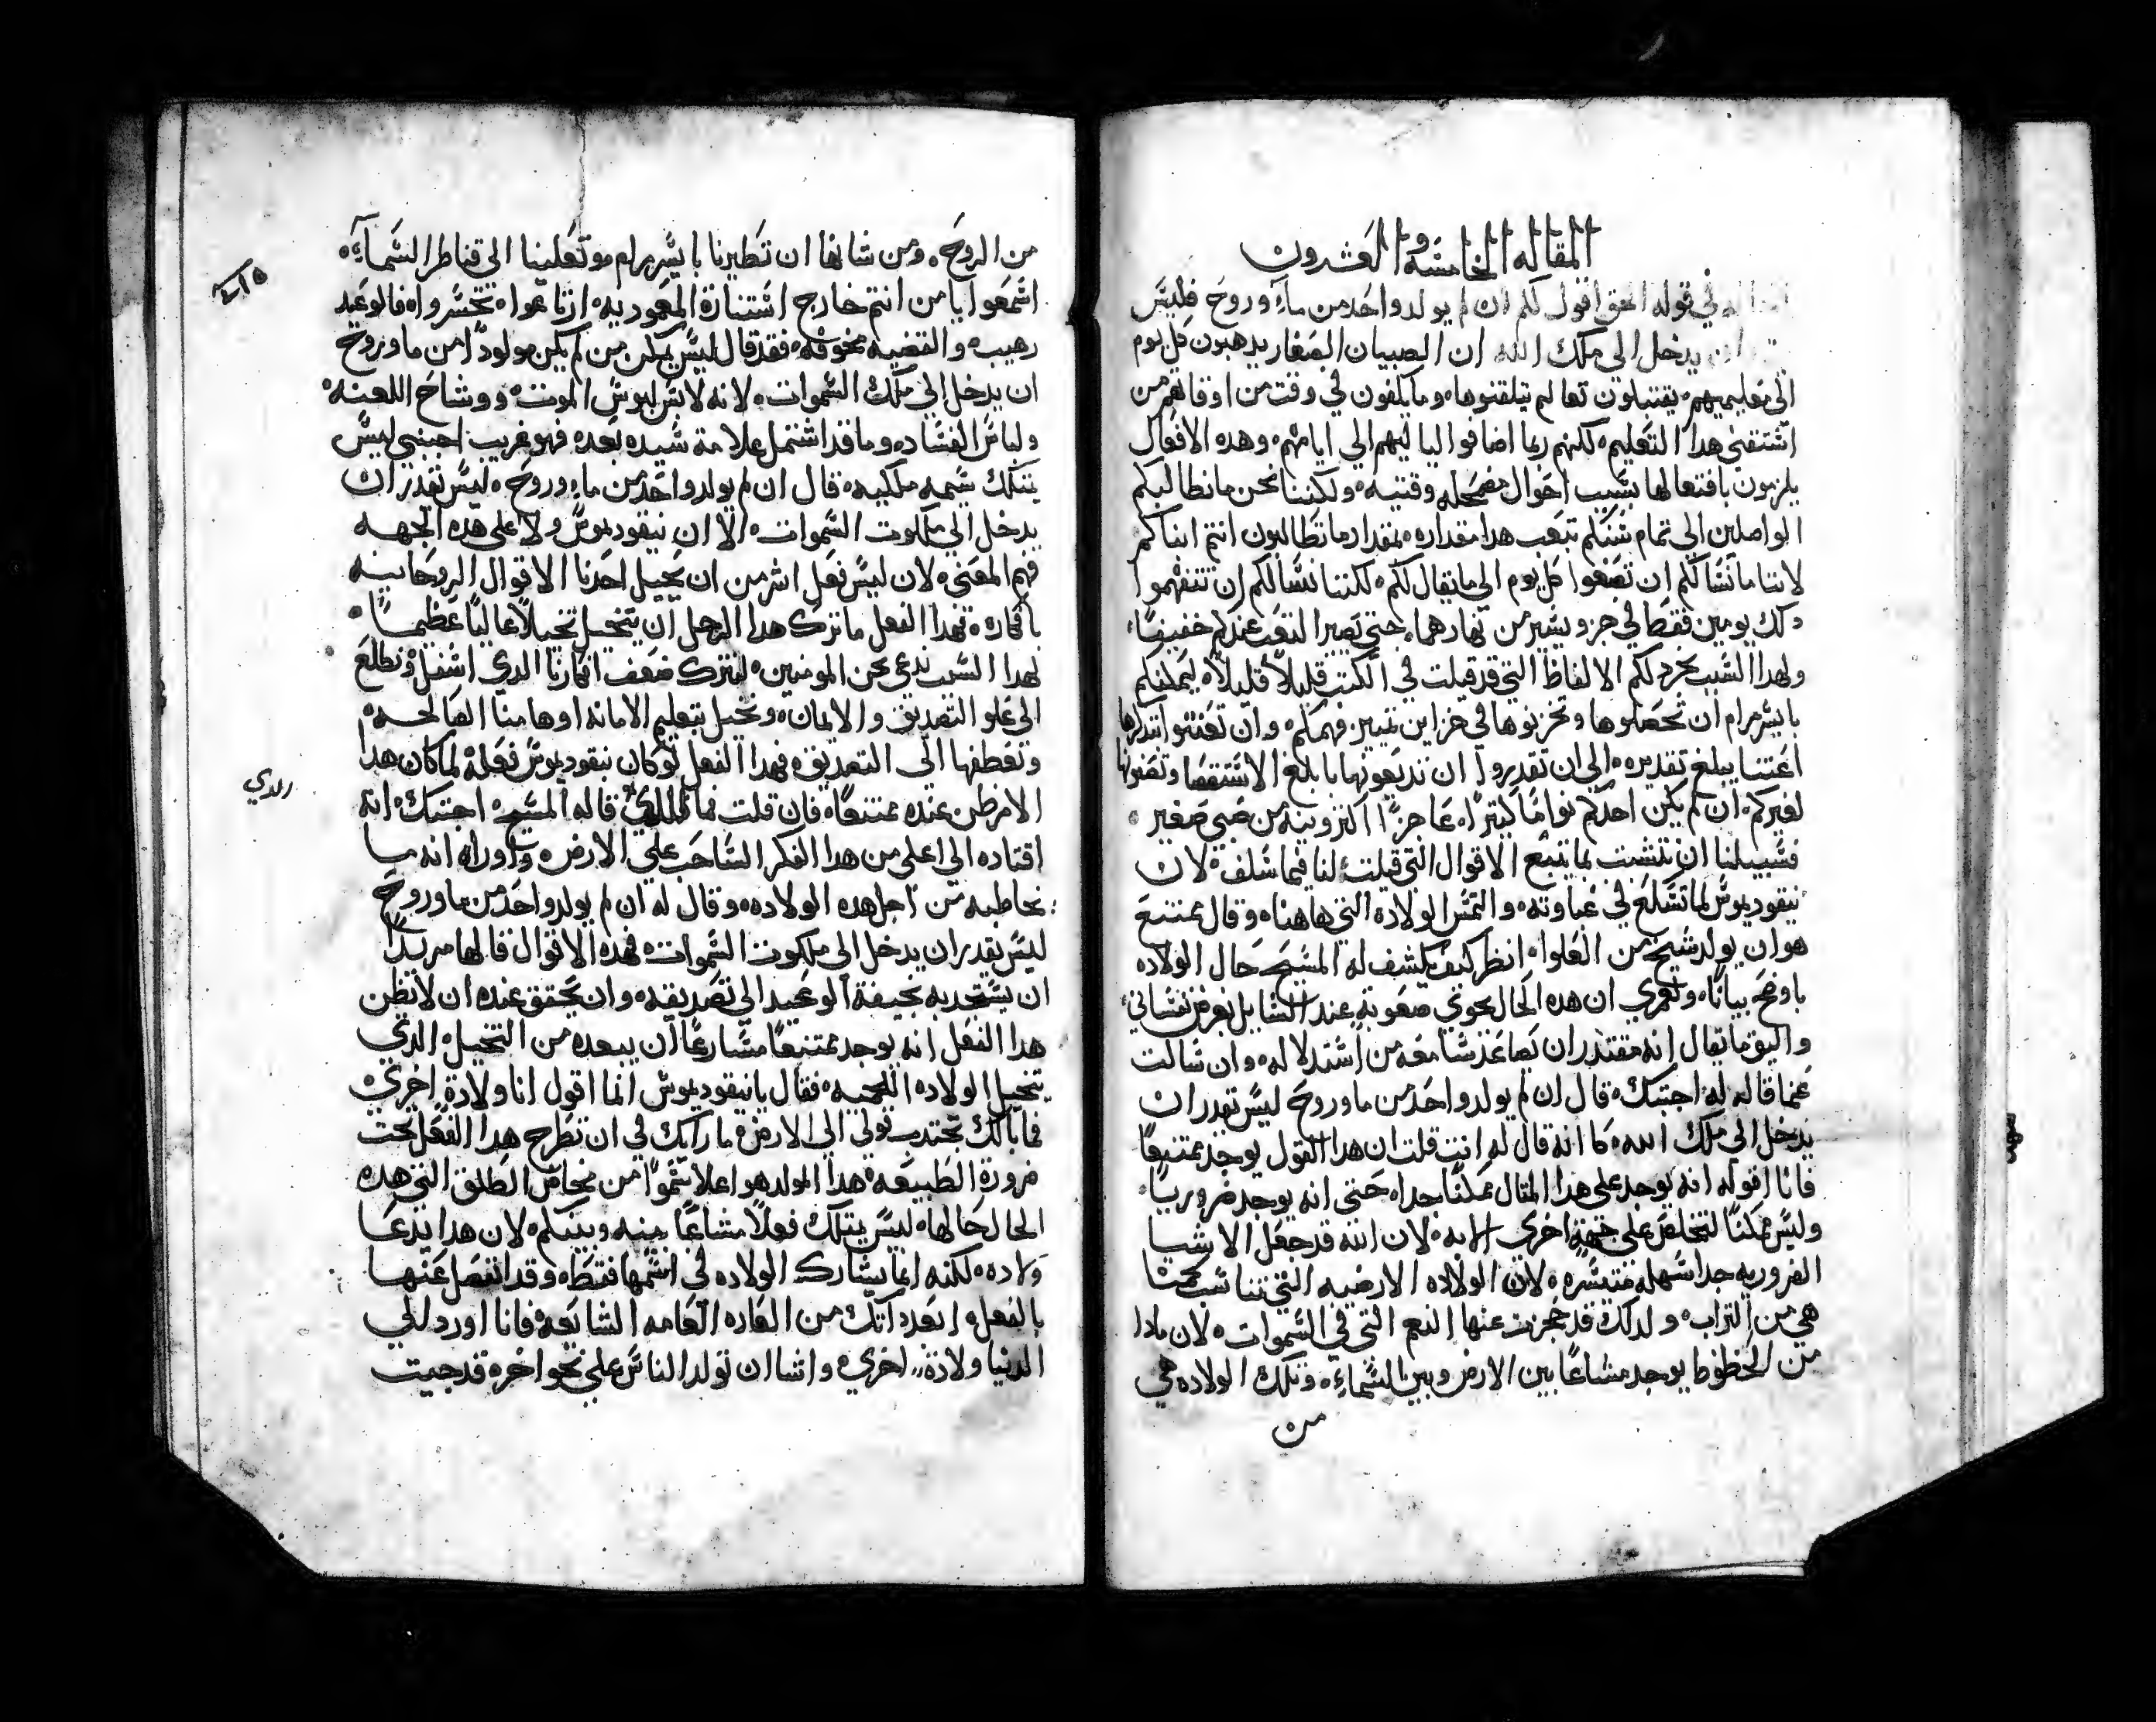 المقاله الخامسه والعشرون
في قوله الحق اقول لكم ان لم يولد واحد من ماء وروح فليس
يدخل الى ملك الله ان الصبيان الصغار يدهبون كل يوم
الى معليميهم يقتبلون تعاليم يتلقنوها وما يكلفون في وقت من اوقاتهم من
استقصى هدا التعليم لكنهم ربما اضافوا لياليهم الي ايامهم وهده الافعال
يلزمون بافتعالها بسبب احوال مضمحله وقتيه ولكننا نحن ما نطالبكم
الواصلين الى تمام سنكم بتعب هدا مقداره بمقدار ما تطالبون انتم ابناكم
لاننا ما نسالكم ان تصغوا كل يوم الي ما يقال لكم لكننا نسالكم ان تتفهموا
دلك يومين فقط في جزو يسير من نهارهما حتى يصير التعب عندكم خفيفًا
ولهدا السبب نجرد لكم الالفاظ التي قد قيلت في الكتب قليلاً قليلاً ليمكنكم
بايسر مرام ان تحصلوها وتخزنوها في خزاين تمييز فهمكم وان تعتنوا بتدكرها
اعتنا يبلغ تقديره الى ان تقدروا ان تديعونها بابلغ الاستقصا وتصفونها
لغيركم ان لم يكن احدكم نوامًا كثيرًا عاجزًا اكثر ونيه من صبي صغير
فسبيلنا ان نتشبت بما يتبع الاقوال التي قيلت لنا فيما سلف لان
نيقوديموس لما تسكع في غباوته والتمس الولادة التي هاهنا وقال ممتنع
هو ان يولد شيخ من العلوا انظر كيف يكشف له المسيح حال الولاده
باوضح بيانًا ولعمري ان هده الحال تحوي صعوبة عند السايل بغرض نفساني
واليق ما يقال انه مقتدر ان يصاعد سامعه من استدلاله وان سالت
عما قاله له اجبتك قال ان لم يولد واحد من ما وروح ليس تقدر ان
يدخل الى ملك الله كما انه قال له انت قلت ان هدا القول يوجد ممتنعًا
فانا اقوله انه يوجد على هدا المتال ممكنًا جدا حتى انه يوجد ضروريًا
وليس ممكنًا التخلص على جهة اخرى لابه لان الله قد جعل الاشيا
الضروريه جدا سهله متيسره لان الولاده الارضيه التي تناسب جسمنا
هي من التراب ولدلك قد حجزت عنها النعم التي في السموات لان مادا
من الحظوظ يوجد مشاعًا بين الارض وبين السماء وتلك الولاده هي
من
من الروح ومن شانها ان تطيرنا بايسر مرام وتعلينا الى قناطر السماء
اسمعوا يا من انتم خارج استنارة المعموديه ارتاعوا تحسروا فالوعيد
رهيب والقضيه مخوفه فقد قال ليس يمكن من لم يكن مولودًا من ما وروح
ان يدخل الي ملك السموات لانه لابس لبوس الموت ووشاح اللعنه
ولباس الفساد وما قد اشتمل علامة سيده بعده فهو غريب اجنبي ليس
يمتلك سمه ملكيه قال ان لم يولد واحد من ماء وروح ليس تقدر ان
يدخل الي ملكوت السموات الا ان نيقوديموس ولا على هده الجهه
فهم المعنى لان ليس فعل اشر من ان يحيل احدنا الاقوال الروحانيه
بافكاره فهدا الفعل ما ترك هدا الرجل ان يتخيل تخيلاً عاليًا عظيمًا
لهدا السبب ندعى نحن المومنين لنترك ضعف افكارنا الدي اسفل ونطلع
الى علو التصديق والايمان ونحيل بتعليم الامانه اوهامنا الصالحه
ونعطفها الى التصديق فهدا الفعل لو كان نيقوديموس فعله لما كان هدا
الامر ظن عنده ممتنعًا فان قلت فما الدي قاله المسيح اجبتك انه
اقتاده الي اعلى من هدا الفكر الساحب على الارض واوراه انه ما
يخاطبه من اجل هده الولاده وقال له ان لم يولد واحد من ما وروح
ليس يقدر ان يدخل الى ملكوت السموات فهده الاقوال قالها مريدًا
ان يستجدبه بخيفة الوعيد الي تصديقه وان يحقق عنده ان لا تظن
هدا الفعل انه يوجد ممتنعًا مسارعًا ان يبعده من التخيل الدي
يتخيل الولاده اللحميه فقال يا نيقوديموس انما اقول انا ولادة اخرى
فما بالك تجتدب قولي الى الارض ما رايك في ان تطرح هدا الفعل تحت
ضرورة الطبيعه هدا المولد هو اعلا سموًا من مخاض الطلق التي هده
الحال حالها ليس يمتلك فعلاً مشاعًا بينه وبينكم لان هدا يدعا
ولاده لكنه انما يشارك الولاده في اسمها فقط وقد انفصل عنها
بالفعل ابعد داتك من العاده العامه الشايعه فانا اورد الي
الدنيا ولادة اخرى واشا ان تولد الناس على نحو اخر قد جيت
٢١٥